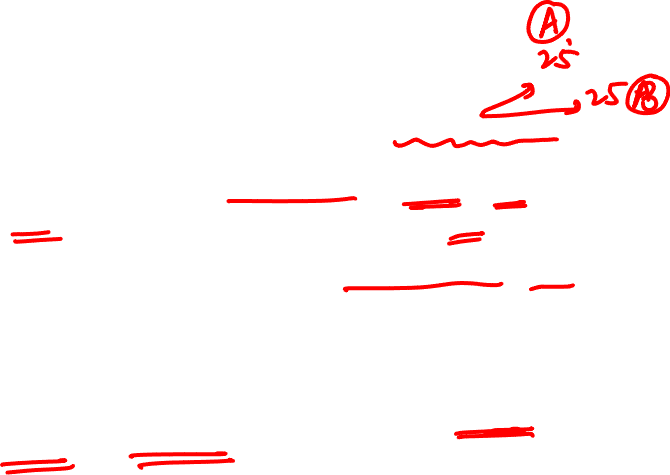 A
25
25 B